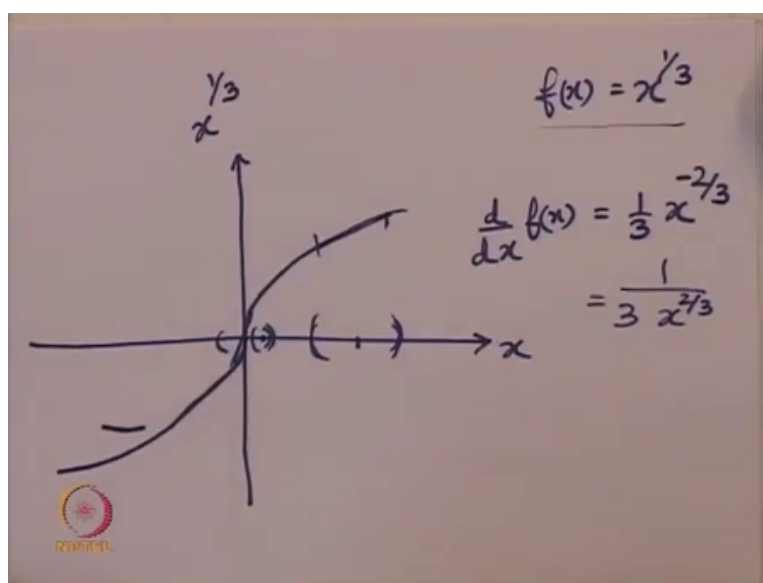 x^{1/3}
f(x) = x^{1/3}
d/dx f(x) = 1/3 x^{-2/3}
= 1/(3 x^{2/3})
x
NPTEL